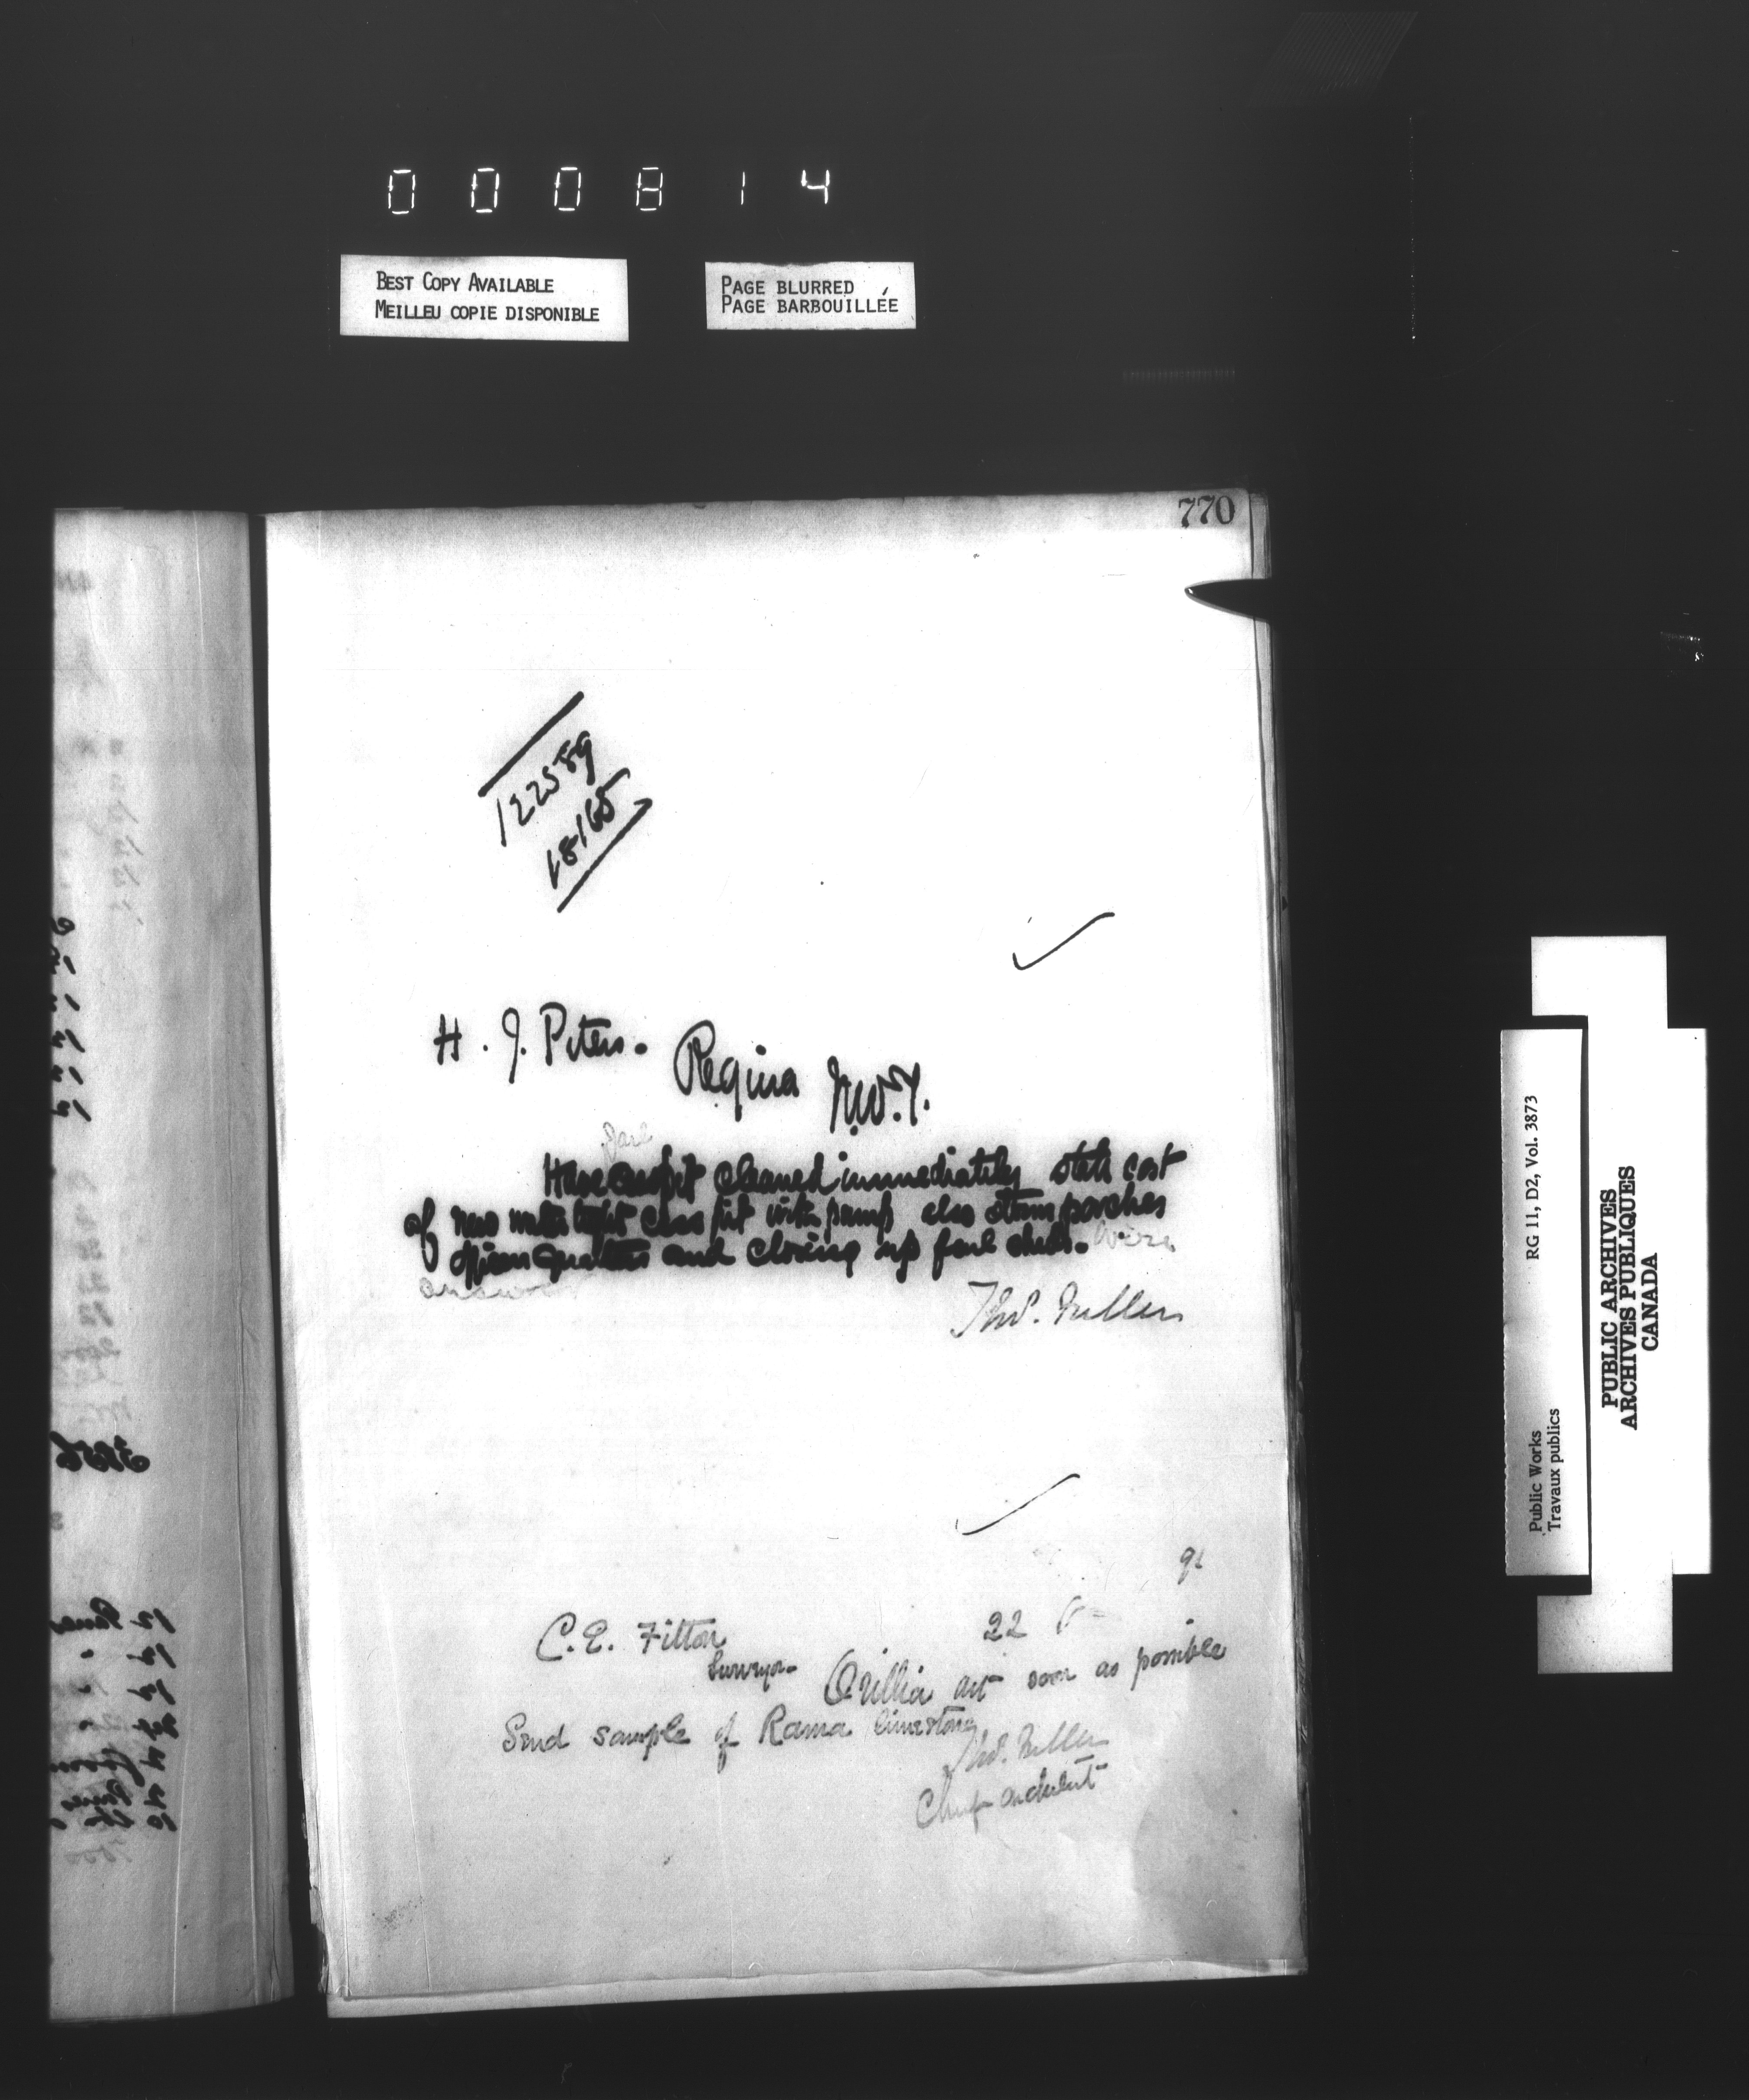 000814
BEST COPY AVAILABLE
MEILLEU COPIE DISPONIBLE
PAGE BLURRED
PAGE BARBOUILLÉE
770
122589
18165
H. J. Peters.
Regina N.W.T.
Gaol
Have cesspit cleaned immediately state cost
of new water tight cess pit with pump also storm porches
and closing up foul ones. Wire
answer
Thos. Fuller
C. E. Fitton
22
91
Surveyor
Orillia Ont
soon as possible
Send sample of Rama limestone
Thos. Fuller
Chief Architect
Public Works
Travaux publics
RG 11, D2, Vol. 3873
PUBLIC ARCHIVES
ARCHIVES PUBLIQUES
CANADA